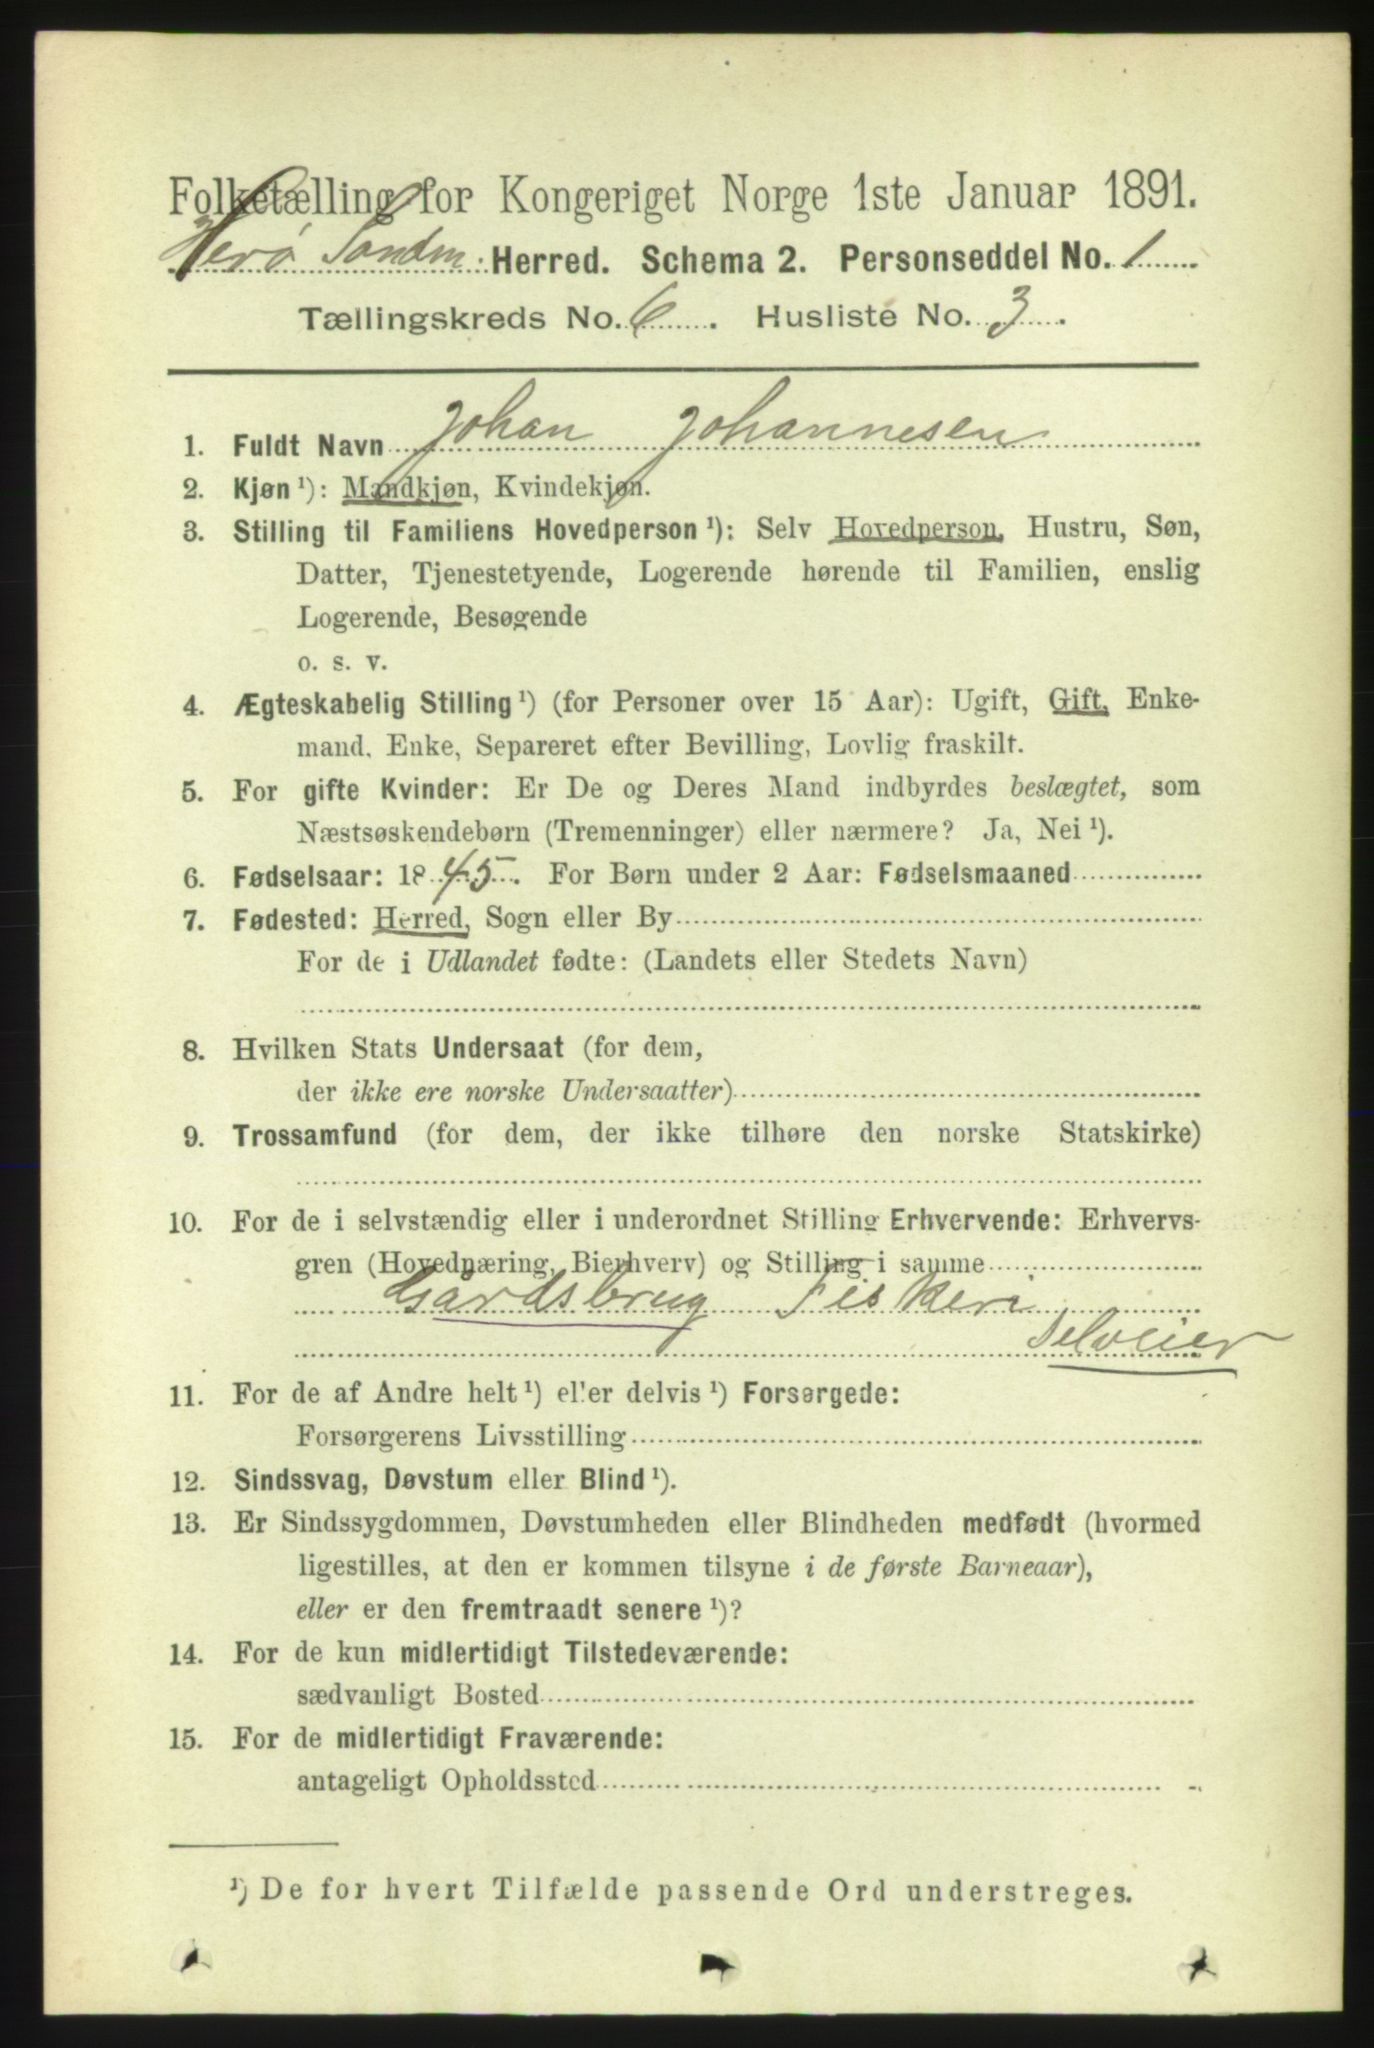 Folketælling for Kongeriget Norge 1ste Januar 1891.
Herø Søndm. Herred. Schema 2. Personseddel No. 1
Tællingskreds No. 6. Husliste No. 3.
1. Fuldt Navn Johan Johannesen
2. Kjøn ¹): Mandkjøn, Kvindekjøn.
3. Stilling til Familiens Hovedperson ¹): Selv Hovedperson, Hustru, Søn,
Datter, Tjenestetyende, Logerende hørende til Familien, enslig
Logerende, Besøgende
o. s. v.
4. Ægteskabelig Stilling ¹) (for Personer over 15 Aar): Ugift, Gift, Enke-
mand, Enke, Separeret efter Bevilling, Lovlig fraskilt.
5. For gifte Kvinder: Er De og Deres Mand indbyrdes beslægtet, som
Næstsøskendebørn (Tremenninger) eller nærmere? Ja, Nei ¹).
6. Fødselsaar: 1845. For Børn under 2 Aar: Fødselsmaaned
7. Fødested: Herred, Sogn eller By
For de i Udlandet fødte: (Landets eller Stedets Navn)
8. Hvilken Stats Undersaat (for dem,
der ikke ere norske Undersaatter)
9. Trossamfund (for dem, der ikke tilhøre den norske Statskirke)
10. For de i selvstændig eller i underordnet Stilling Erhvervende: Erhvervs-
gren (Hovednæring, Bierhverv) og Stilling i samme
Gårdsbrug Fiskeri
Selveier
11. For de af Andre helt ¹) eller delvis ¹) Forsørgede:
Forsørgerens Livsstilling
12. Sindssvag, Døvstum eller Blind ¹).
13. Er Sindssygdommen, Døvstumheden eller Blindheden medfødt (hvormed
ligestilles, at den er kommen tilsyne i de første Barneaar),
eller er den fremtraadt senere ¹)?
14. For de kun midlertidigt Tilstedeværende:
sædvanligt Bosted
15. For de midlertidigt Fraværende:
antageligt Opholdssted
¹) De for hvert Tilfælde passende Ord understreges.